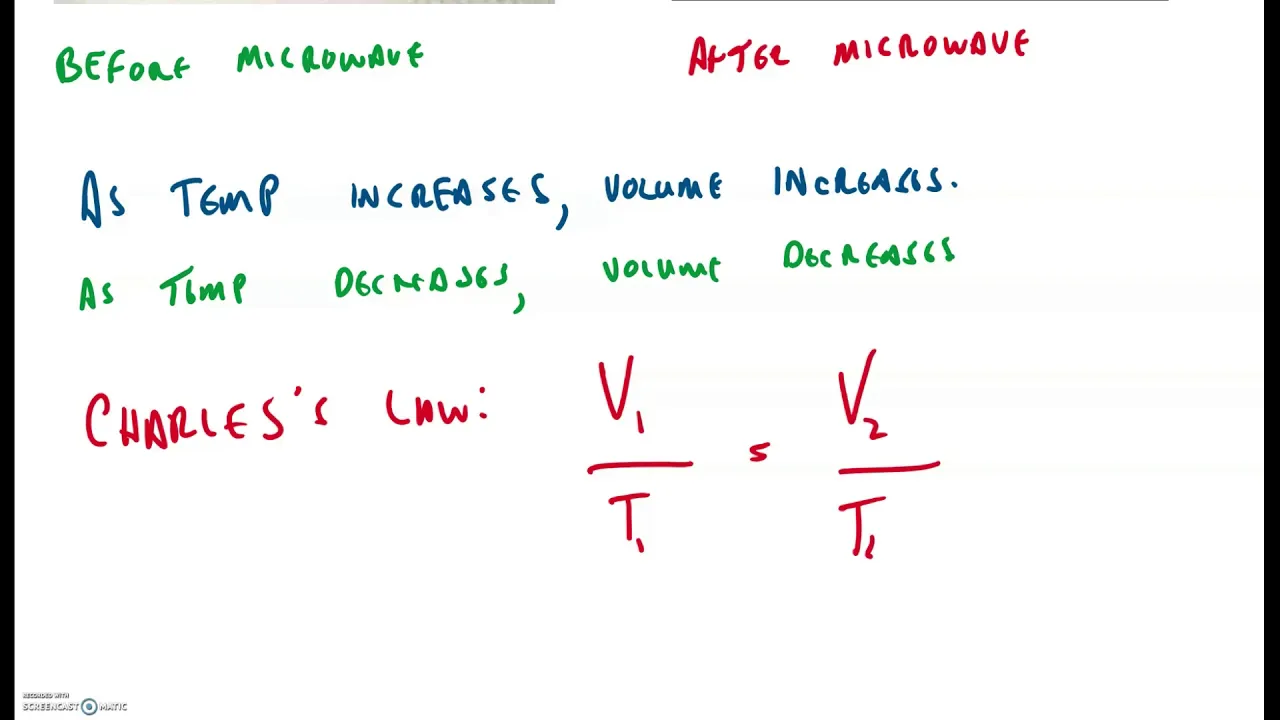 BEFORE MICROWAVE
AFTER MICROWAVE
AS TEMP INCREASES, VOLUME INCREASES.
AS TEMP DECREASES, VOLUME DECREASES
CHARLES'S LAW:
V₁ = V₂
T₁ T₂
RECORDED WITH
SCREENCAST MATIC